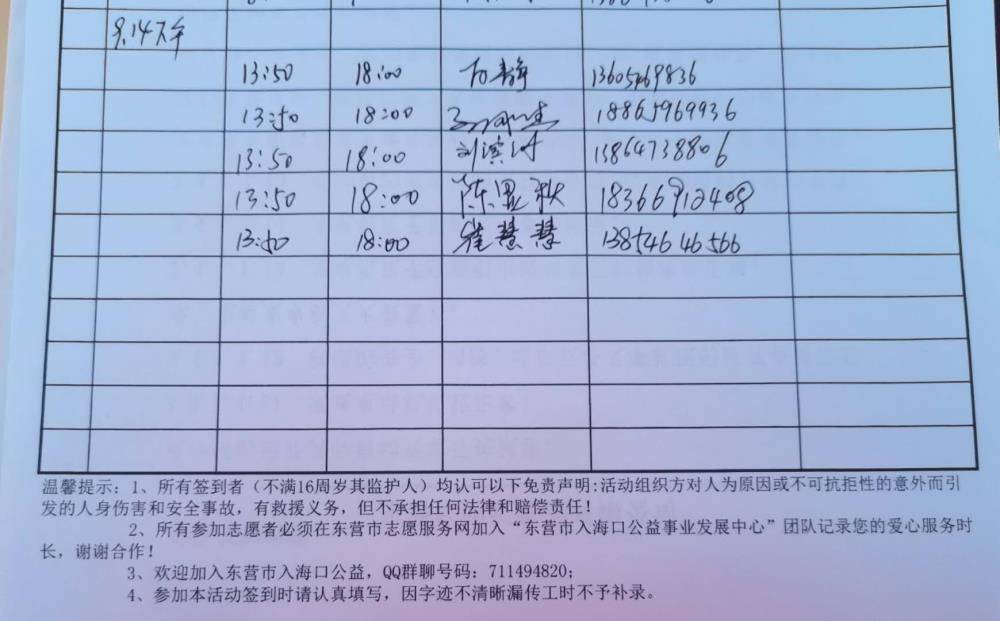 8.14下午
13:50 18:00 石静 13605469836
13:50 18:00 18865969936
13:50 18:00 刘滨 13864738806
13:50 18:00 陈显秋 18366912408
13:50 18:00 崔慧慧 13854646566
温馨提示：1、所有签到者（不满16周岁其监护人）均认可以下免责声明:活动组织方对人为原因或不可抗拒性的意外而引
发的人身伤害和安全事故，有救援义务，但不承担任何法律和赔偿责任！
2、所有参加志愿者必须在东营市志愿服务网加入“东营市入海口公益事业发展中心”团队记录您的爱心服务时
长，谢谢合作！
3、欢迎加入东营市入海口公益，QQ群聊号码：711494820；
4、参加本活动签到时请认真填写，因字迹不清晰漏传工时不予补录。